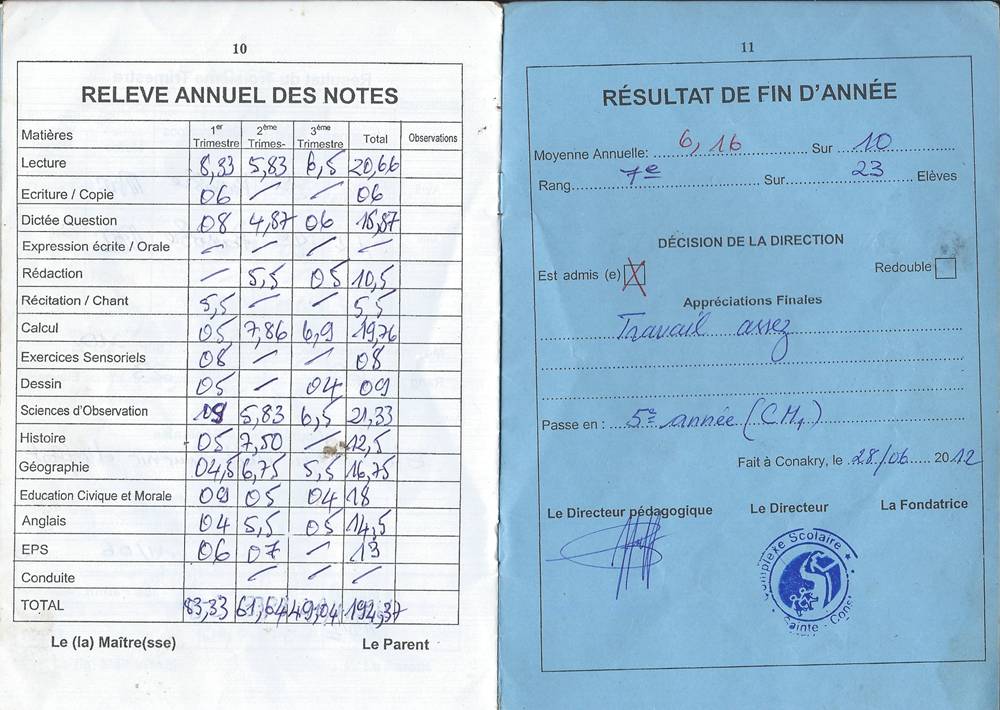 10
RELEVE ANNUEL DES NOTES
Matières 1er Trimestre 2ème Trimes- 3ème Trimestre Total Observations
Lecture 8,83 5,83 6,5 20,66
Ecriture / Copie 06 / / 06
Dictée Question 08 4,87 06 18,87
Expression écrite / Orale / / / /
Rédaction / 5,5 05 10,5
Récitation / Chant 5,5 / / 5,5
Calcul 05 7,86 6,9 19,76
Exercices Sensoriels 08 / / 08
Dessin 05 / 04 09
Sciences d'Observation 09 5,83 6,5 21,33
Histoire 05 7,50 / 12,5
Géographie 04,5 6,75 5,5 16,75
Education Civique et Morale 09 05 04 18
Anglais 04 5,5 05 14,5
EPS 06 07 / 13
Conduite / / /
TOTAL 83,33 61,64 49,04 192,37
Le (la) Maître(sse) Le Parent
11
RÉSULTAT DE FIN D'ANNÉE
Moyenne Annuelle: 6,16 Sur 10
Rang 7e Sur 23 Elèves
DÉCISION DE LA DIRECTION
Est admis (e) X Redouble
Appréciations Finales
Travail assez
Passe en : 5e année (CM1)
Fait à Conakry, le 28/06 2012
Le Directeur pédagogique Le Directeur La Fondatrice
Complexe Scolaire
Sainte - Const